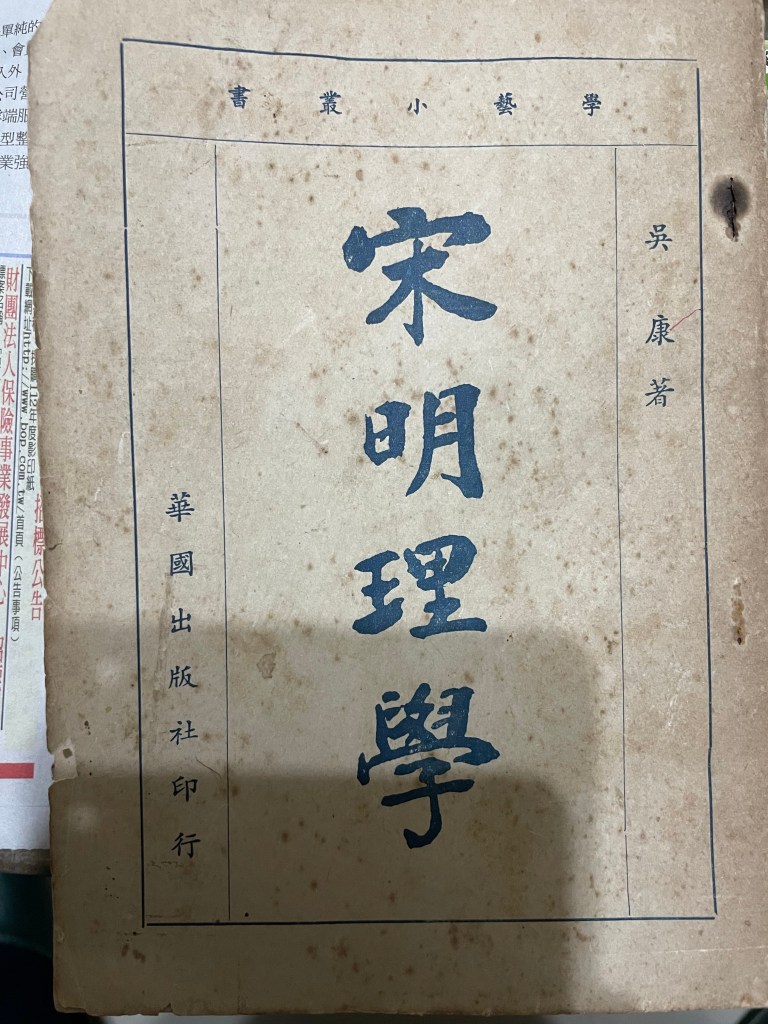 學藝小叢書
吳康著
宋明理學
華國出版社印行
單純的
、會
入外
公司營
端服
型整
業強
財團法人保險事業發展中心
招標公告
112年度影印紙
http://www.bop.com.tw/首頁(公告事項)